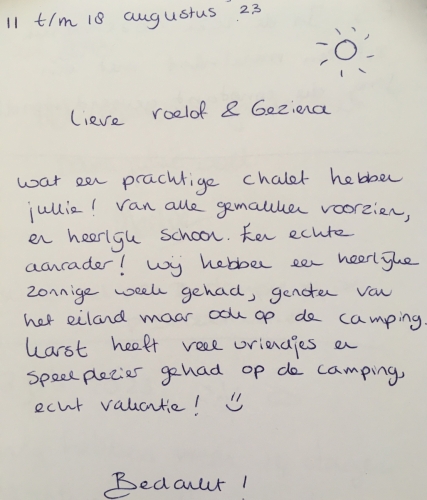 11 t/m 18 augustus 23
Lieve roelof & Geziena
wat een prachtige chalet hebben
jullie! Van alle gemakken voorzien,
en heerlijk schoon. Een echte
aanrader! Wij hebben een heerlijke
zonnige week gehad, genoten van
het eiland maar ook op de camping.
Karst heeft veel vriendjes en
speelplezier gehad op de camping,
echt vakantie!
Bedankt!